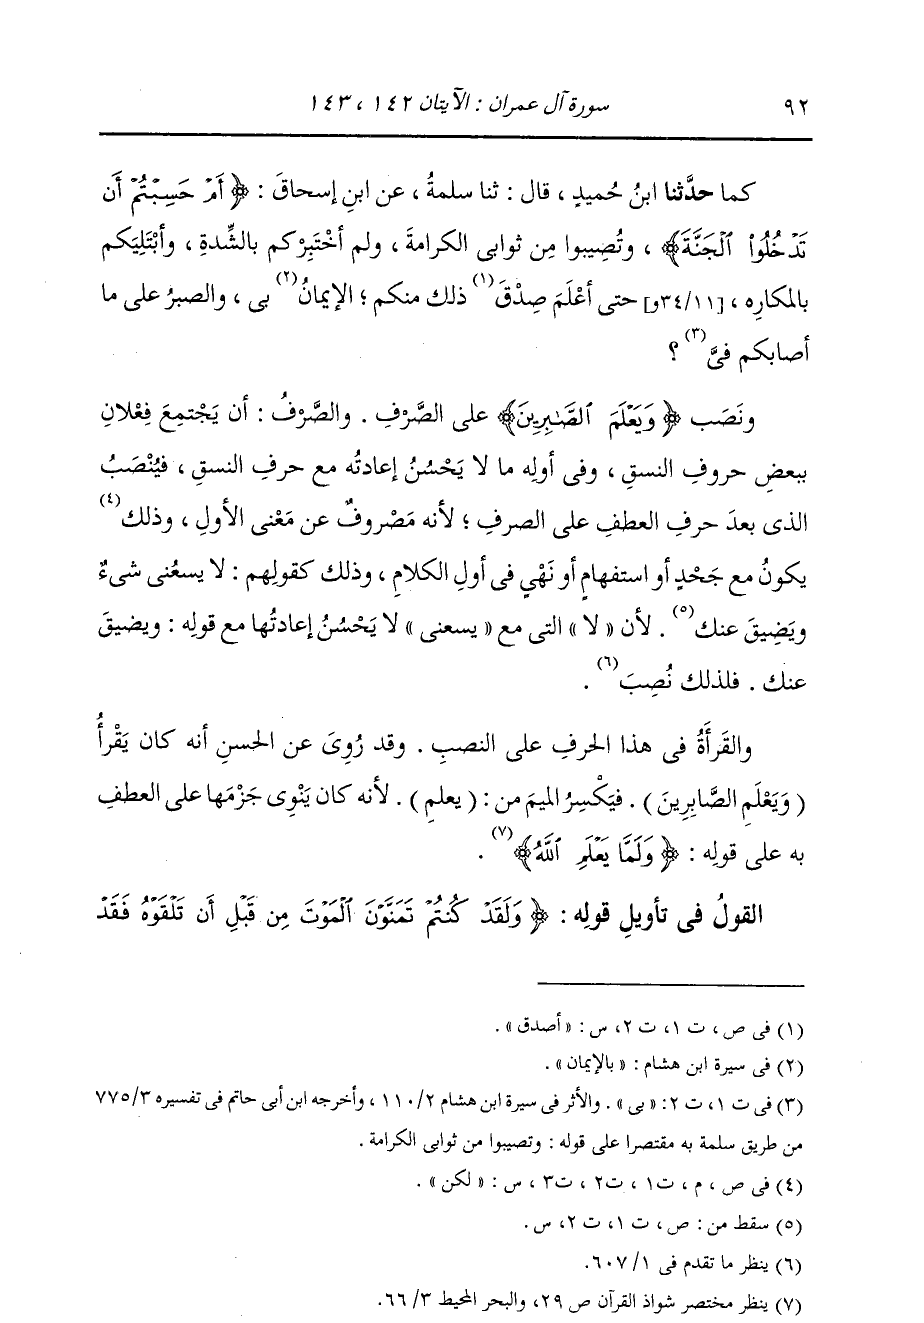 ٩٢ سورة آل عمران : الآيتان ١٤٢ ، ١٤٣
كما حدَّثنا ابنُ حُميدٍ ، قال : ثنا سلمةُ ، عن ابنِ إسحاقَ : ﴿ أَمْ حَسِبْتُمْ أَن
تَدْخُلُوا۟ ٱلْجَنَّةَ ﴾ ، وتُصِيبوا مِن ثوابى الكرامةَ ، ولم أَخْتَبِرْكم بالشِّدةِ ، وأَبْتَلِيَكم
بالمكارِه ، [٣٤/١١و] حتى أَعْلَمَ صِدْقَ(١) ذلك منكم ؛ الإيمانُ(٢) بى ، والصبرُ على ما
أصابكم فىَّ(٣) ؟
ونَصَب ﴿ وَيَعْلَمَ ٱلصَّـٰبِرِينَ ﴾ على الصَّرْفِ . والصَّرْفُ : أن يَجْتمِعَ فِعْلانِ
ببعضِ حروفِ النسقِ ، وفى أولِه ما لا يَحْسُنُ إعادتُه مع حرفِ النسقِ ، فيُنْصَبُ
الذى بعدَ حرفِ العطفِ على الصرفِ ؛ لأنه مَصْروفٌ عن مَعْنى الأولِ ، وذلك(٤)
يكونُ مع جَحْدٍ أو استفهامٍ أو نَهْيٍ فى أولِ الكلامِ ، وذلك كقولِهم : لا يسعُنى شىءٌ
ويَضِيقَ عنك(٥) . لأن « لا » التى مع « يسعنى » لا يَحْسُنُ إعادتُها مع قولِه : ويضيقَ
عنك . فلذلك نُصِبَ(٦) .
والقَرَأَةُ فى هذا الحرفِ على النصبِ . وقد رُوِىَ عن الحسنِ أنه كان يَقْرأُ
( وَيَعْلَمِ الصَّابِرِينَ ) . فيَكْسِرُ الميمَ من : ( يعلم ) . لأنه كان يَنْوِى جَزْمَها على العطفِ
به على قولِه : ﴿ وَلَمَّا يَعْلَمِ ٱللَّهُ ﴾(٧) .
القولُ فى تأويلِ قولِه : ﴿ وَلَقَدْ كُنتُمْ تَمَنَّوْنَ ٱلْمَوْتَ مِن قَبْلِ أَن تَلْقَوْهُ فَقَدْ
(١) فى ص ، ت ١، ت ٢، س : « أصدق » .
(٢) فى سيرة ابن هشام : « بالإيمان » .
(٣) فى ت ١، ت ٢: « بى » . والأثر فى سيرة ابن هشام ١١٠/٢ ، وأخرجه ابن أبى حاتم فى تفسيره ٧٧٥/٣
من طريق سلمة به مقتصرا على قوله : وتصيبوا من ثوابى الكرامة .
(٤) فى ص ، م ، ت١ ، ت٢ ، ت٣ ، س : « لكن » .
(٥) سقط من : ص ، ت ١، ت ٢، س .
(٦) ينظر ما تقدم فى ١/ ٦٠٧.
(٧) ينظر مختصر شواذ القرآن ص ٢٩، والبحر المحيط ٣/ ٦٦.